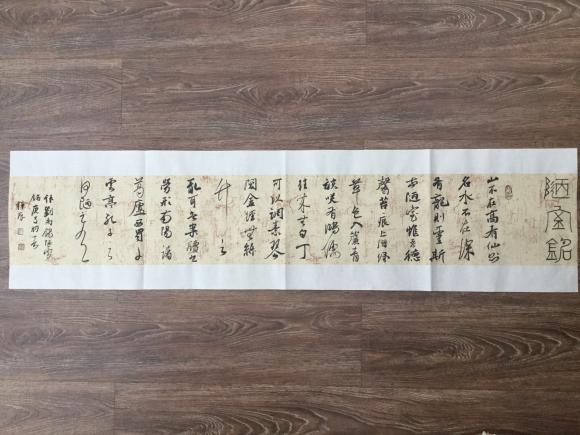 陋室銘
山不在高有仙則
名水不在深
有龍則靈斯
是陋室惟吾德
馨苔痕上階綠
草色入簾青
談笑有鴻儒
往來無白丁
可以調素琴
閱金經無絲
竹之
亂耳無案牘之
勞形南陽諸
葛廬西蜀子
雲亭孔子云
何陋之有
劉禹錫陋室
銘庚子